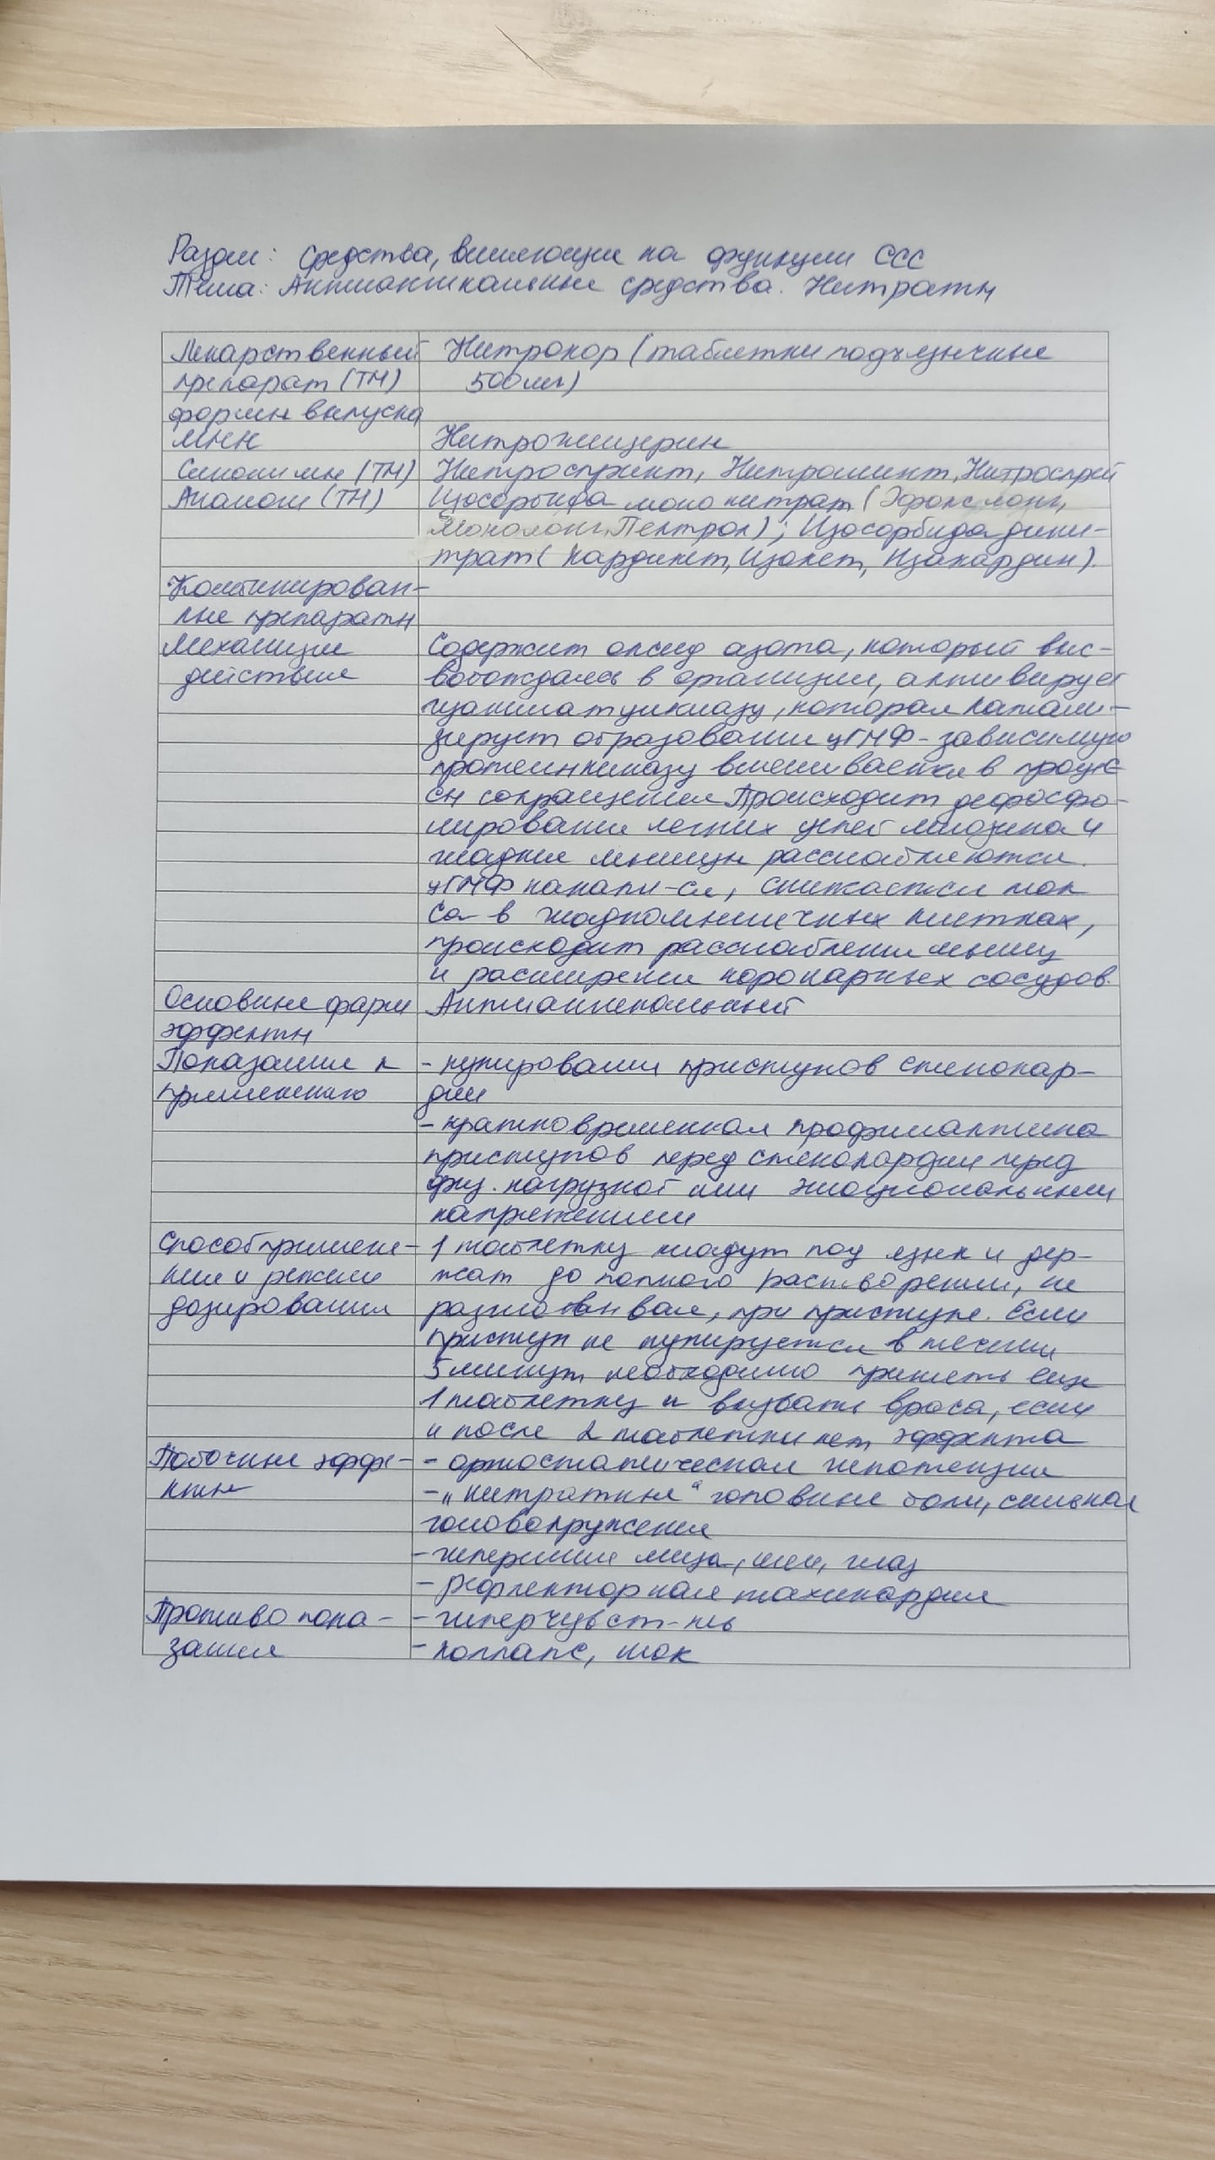 Раздел: Средства, влияющие на функции ССС
Тема: Антиангинальные средства. Нитраты
Лекарственный Нитрокор (таблетки подъязычные
препарат (ТН) 500мкг)
формы выпуска
МНН Нитроглицерин
Синонимы (ТН) Нитроспринт, Нитроминт, Нитроспрей
Аналоги (ТН) Изосорбида мононитрат (Эфокс лонг,
Монолонг, Пектрол); Изосорбида дини-
трат (Кардикет, Изокет, Изакардин).
Комбинирован-
ные препараты
Механизм Содержит оксид азота, который выс-
действия вобождаясь в организме, активирует
гуанилатциклазу, которая катали-
зирует образование цГМФ-зависимую
протеинкиназу вмешивается в процес
сы сокращения Происходит дефосфо-
лирование легких цепей миозина и
гладкие мышцы расслабляются.
цГМФ накапл-ся, снижается ток
Ca в гладкомышечных клетках,
происходит расслабление мышц
и расширение коронарных сосудов.
Основные фарм Антиангинальный
эффекты
Показания к - купирование приступов стенокар-
применению дии
- кратковременная профилактика
приступов перед стенокардии перед
физ. нагрузкой или эмоциональным
напряжением
Способ примене- 1 таблетку кладут под язык и дер-
ния и режим жат до полного растворения, не
дозирования разжевывая, при приступе. Если
приступ не купируется в течении
5 минут необходимо принять еще
1 таблетку и вызвать врача, если
и после 2 таблетки нет эффекта
Побочные эффе- - ортостатическая гипотензия
кты - „нитратные" головные боли, сильная
головокружения
- гиперемия лица, шеи, глаз
- рефлекторная тахикардия
Противопока- - гиперчувст-ть
зания - коллапс, шок